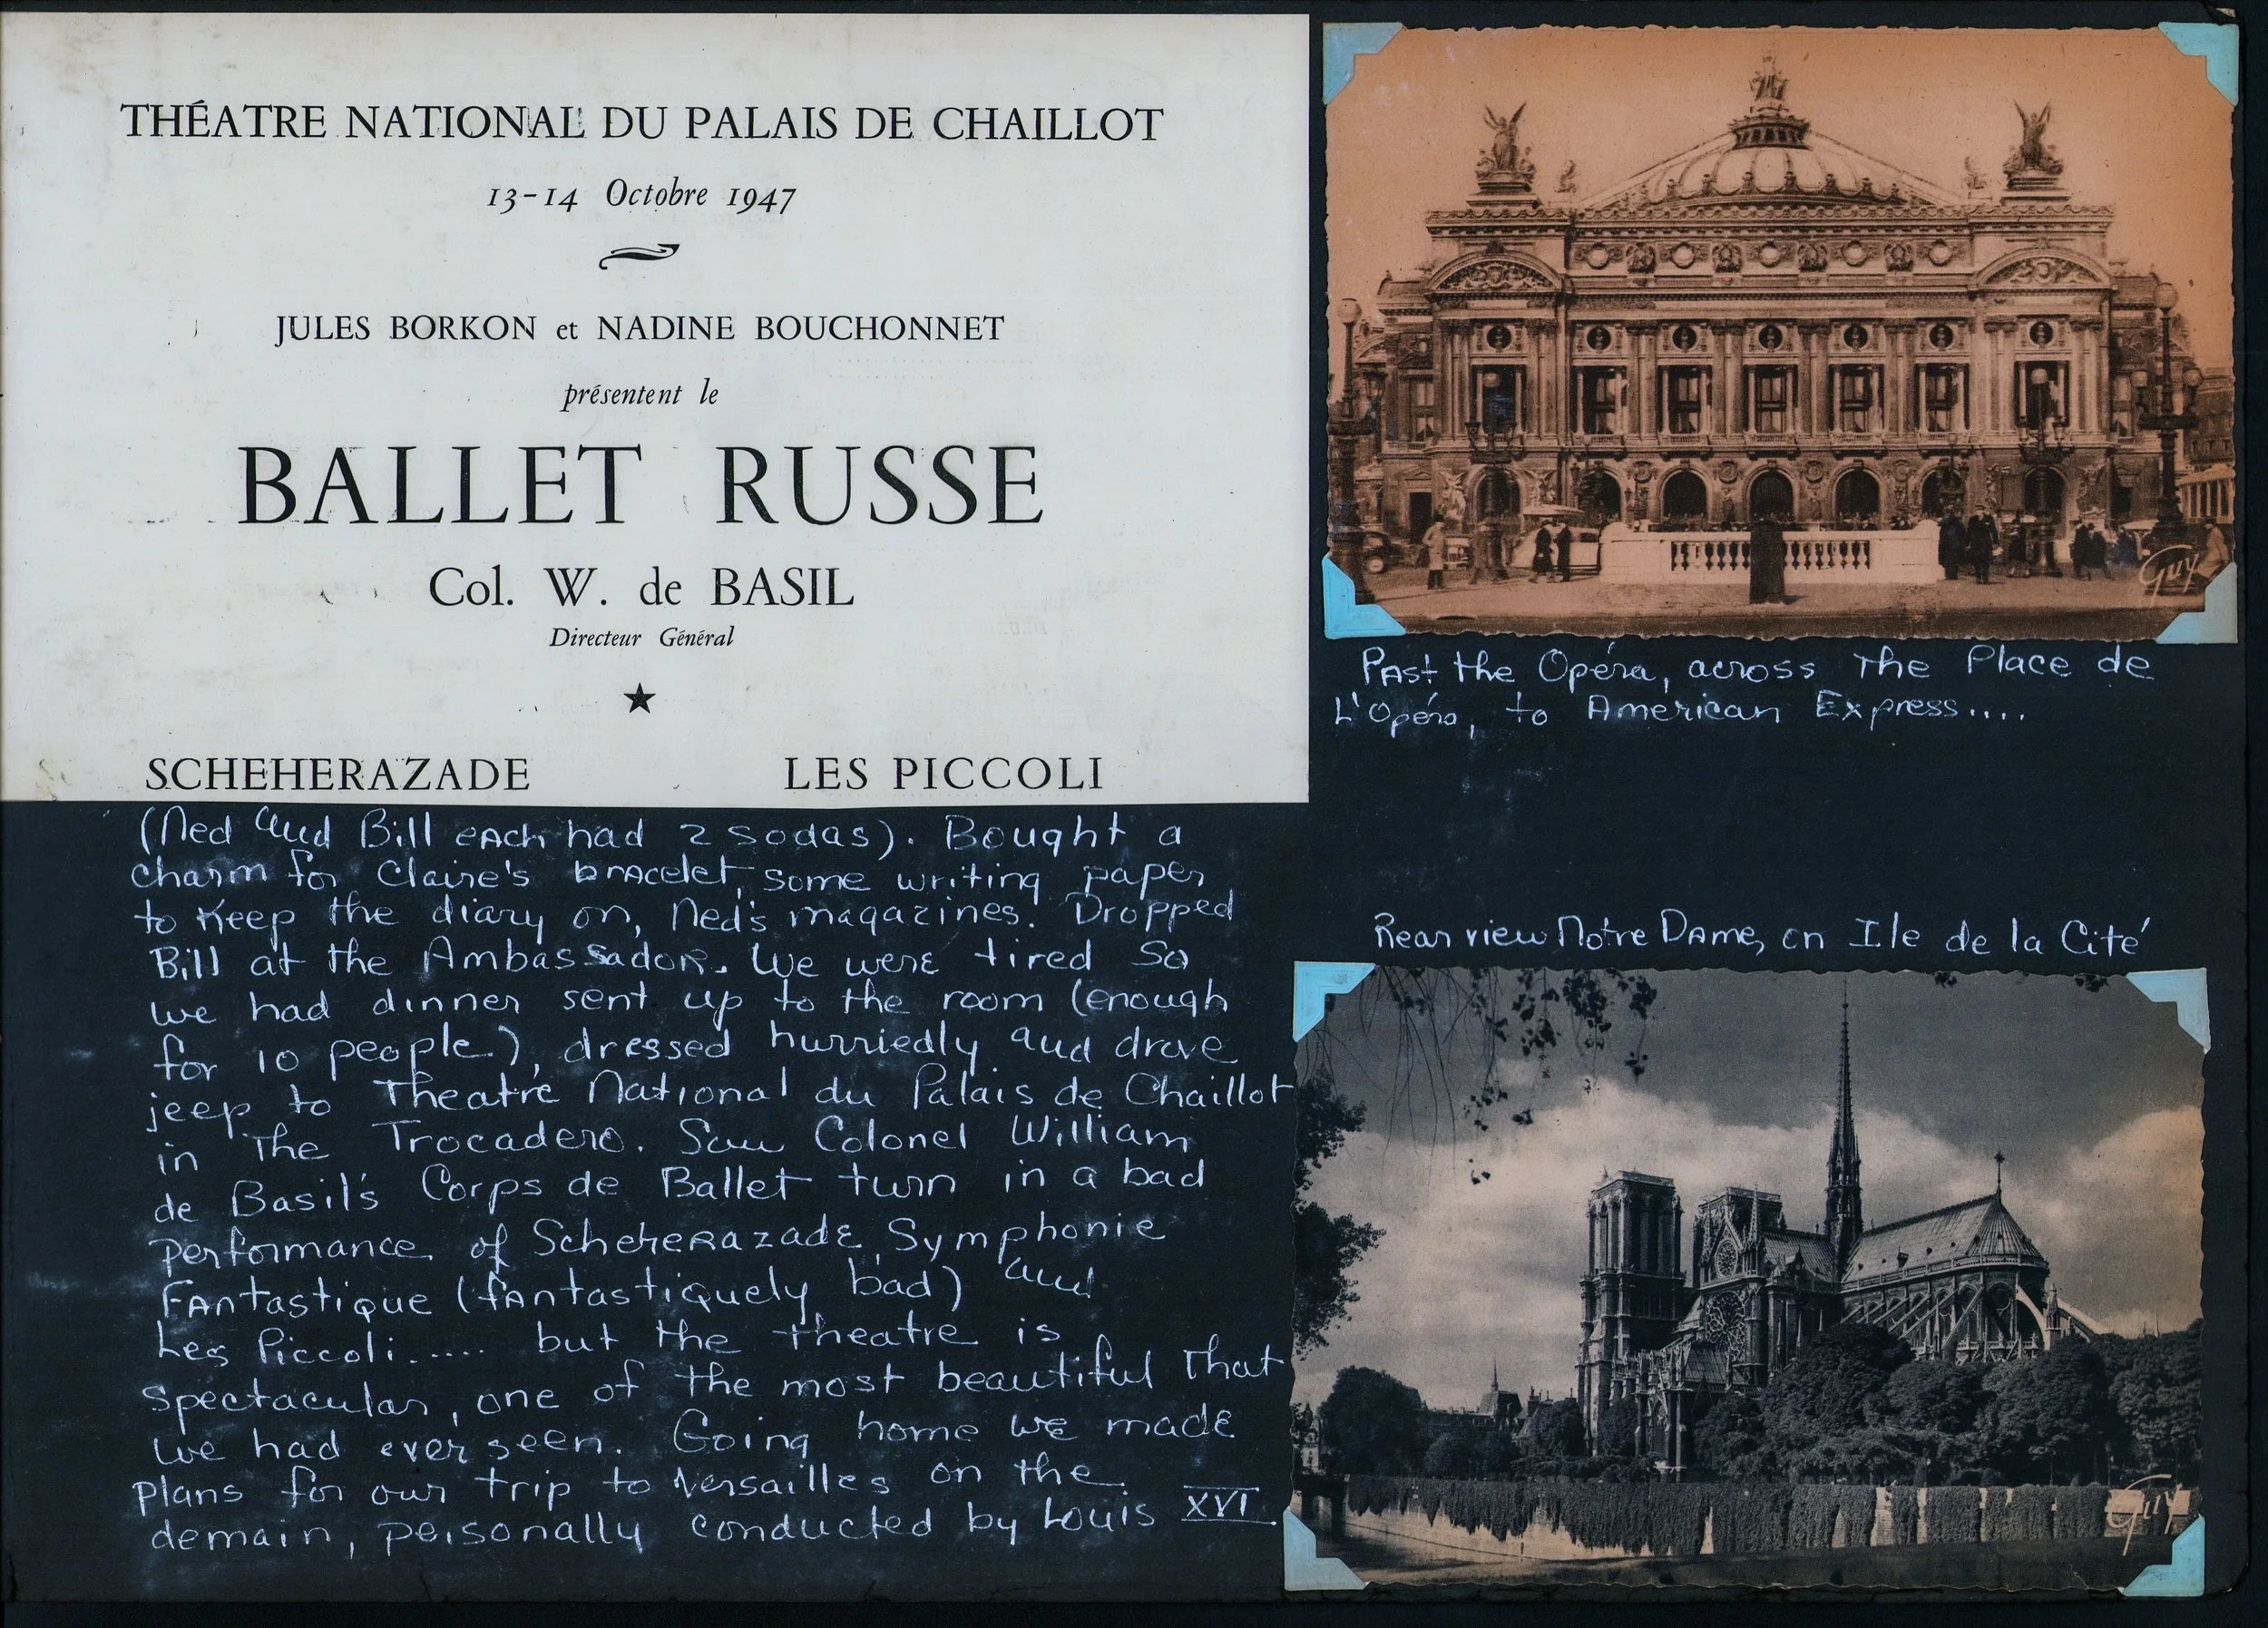 THÉATRE NATIONAL DU PALAIS DE CHAILLOT
13-14 Octobre 1947
JULES BORKON et NADINE BOUCHONNET
présentent le
BALLET RUSSE
Col. W. de BASIL
Directeur Général
★
SCHEHERAZADE LES PICCOLI
(Ned and Bill each had 2 sodas). Bought a
charm for Claire's bracelet, some writing paper
to keep the diary on, Ned's magazines. Dropped
Bill at the Ambassador. We were tired so
we had dinner sent up to the room (enough
for 10 people), dressed hurriedly and drove
jeep to Theatre National du Palais de Chaillot
in the Trocadero. Saw Colonel William
de Basil's Corps de Ballet turn in a bad
performance of Scheherazade, Symphonie
Fantastique (fantastiquely bad) and
Les Piccoli..... but the theatre is
spectacular, one of the most beautiful that
we had ever seen. Going home we made
plans for our trip to Versailles on the
demain, personally conducted by Louis XVI.
Guy
Past the Opéra, across the Place de
L'Opéra, to American Express....
Rear view Notre Dame, on Ile de la Cité
Guy